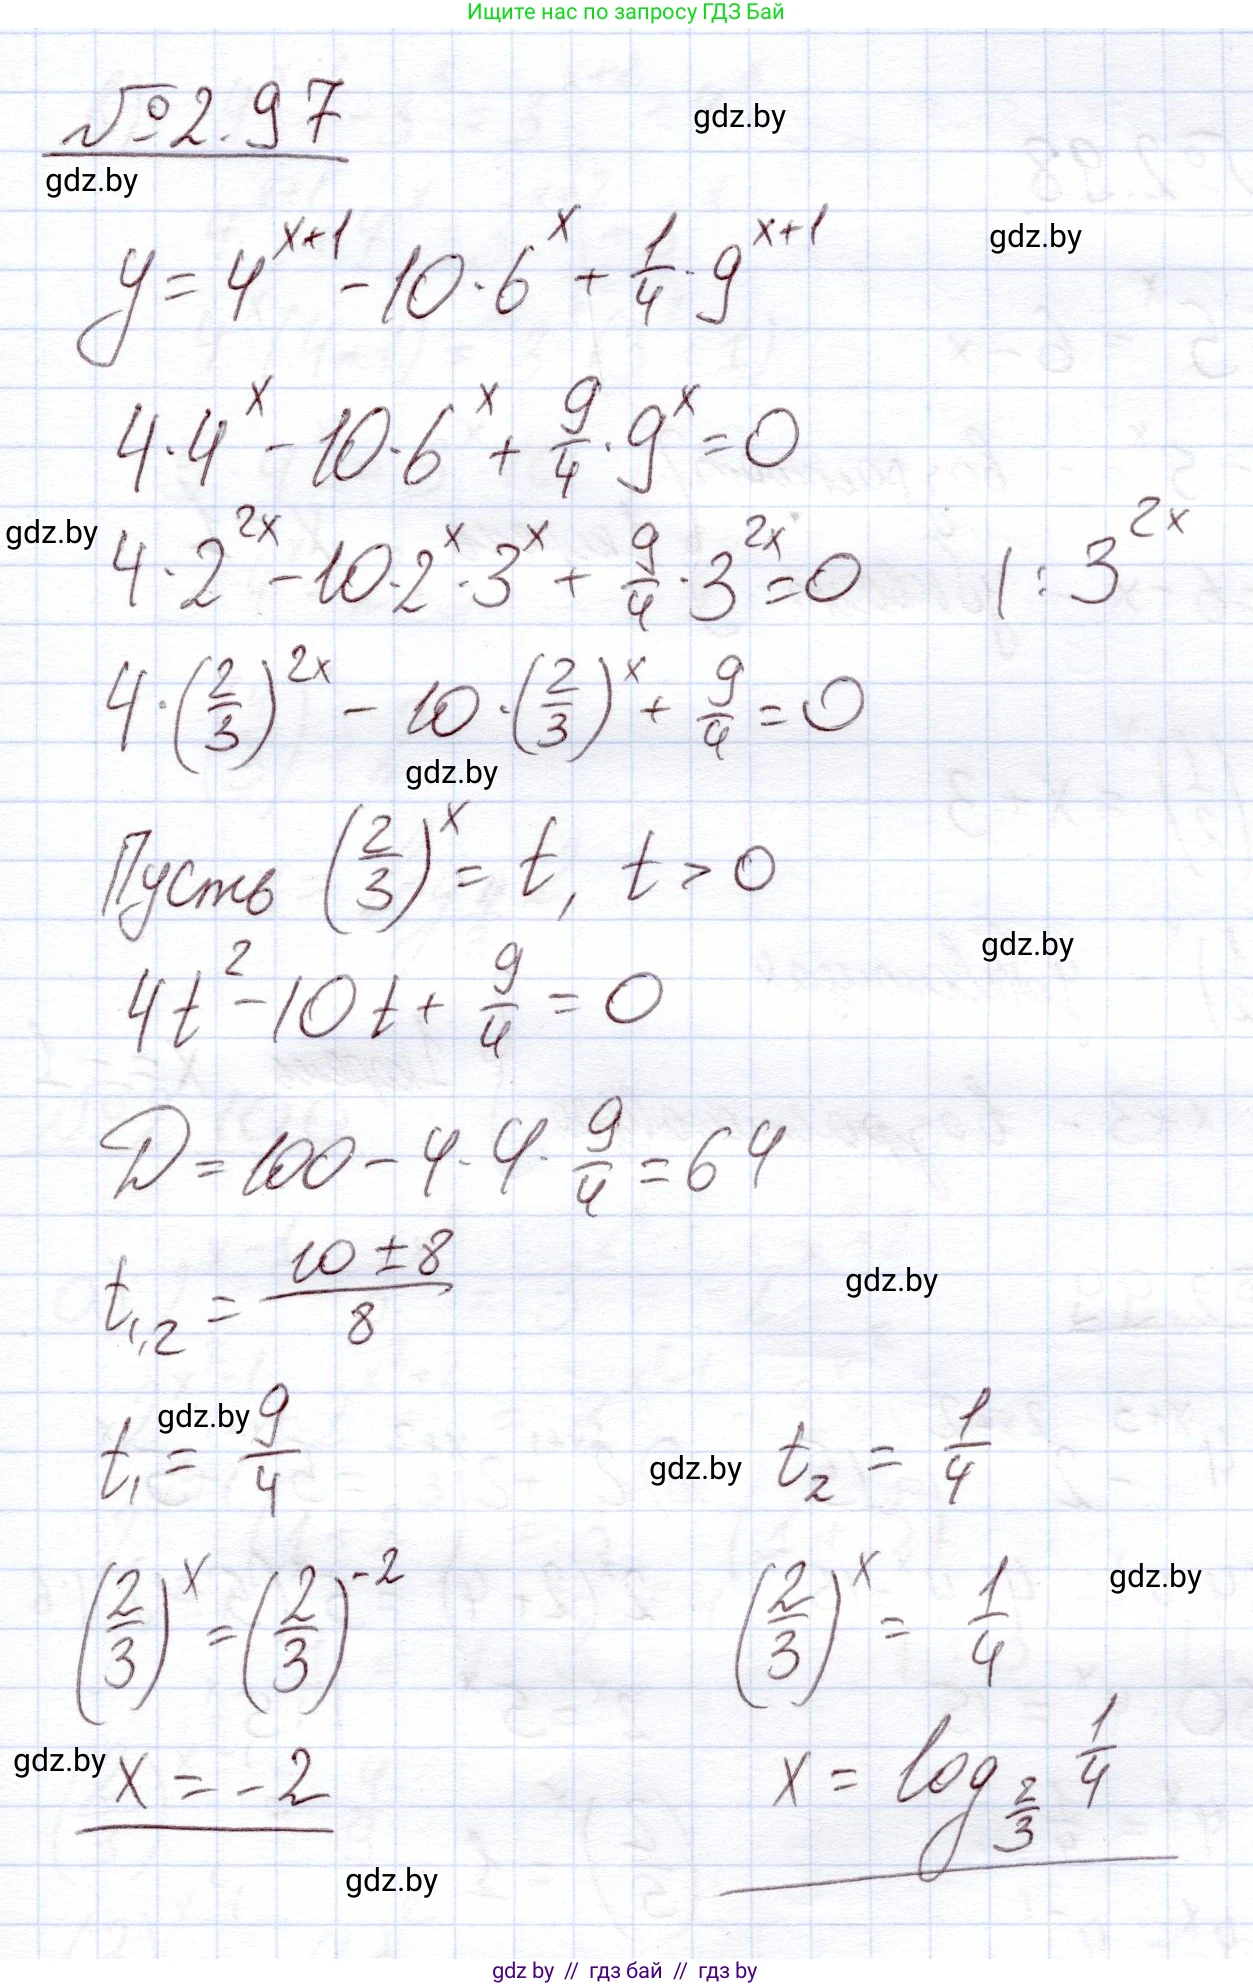 Ищите нас по запросу ГДЗ Бай
№2.97
gdz.by
gdz.by
y = 4^{x+1} - 10 · 6^x + 1/4 · 9^{x+1}
gdz.by
4 · 4^x - 10 · 6^x + 9/4 · 9^x = 0
gdz.by
4 · 2^{2x} - 10 · 2^x · 3^x + 9/4 · 3^{2x} = 0 | : 3^{2x}
4 · (2/3)^{2x} - 10 · (2/3)^x + 9/4 = 0
gdz.by
Пусть (2/3)^x = t, t > 0
gdz.by
4t^2 - 10t + 9/4 = 0
D = 100 - 4 · 4 · 9/4 = 64
t_{1,2} = (10 ± 8)/8
gdz.by
gdz.by
t_1 = 9/4
gdz.by
t_2 = 1/4
(2/3)^x = (2/3)^{-2}
(2/3)^x = 1/4
gdz.by
gdz.by
x = -2
x = log_{2/3} 1/4
gdz.by
gdz by // гдз бай // гдз by